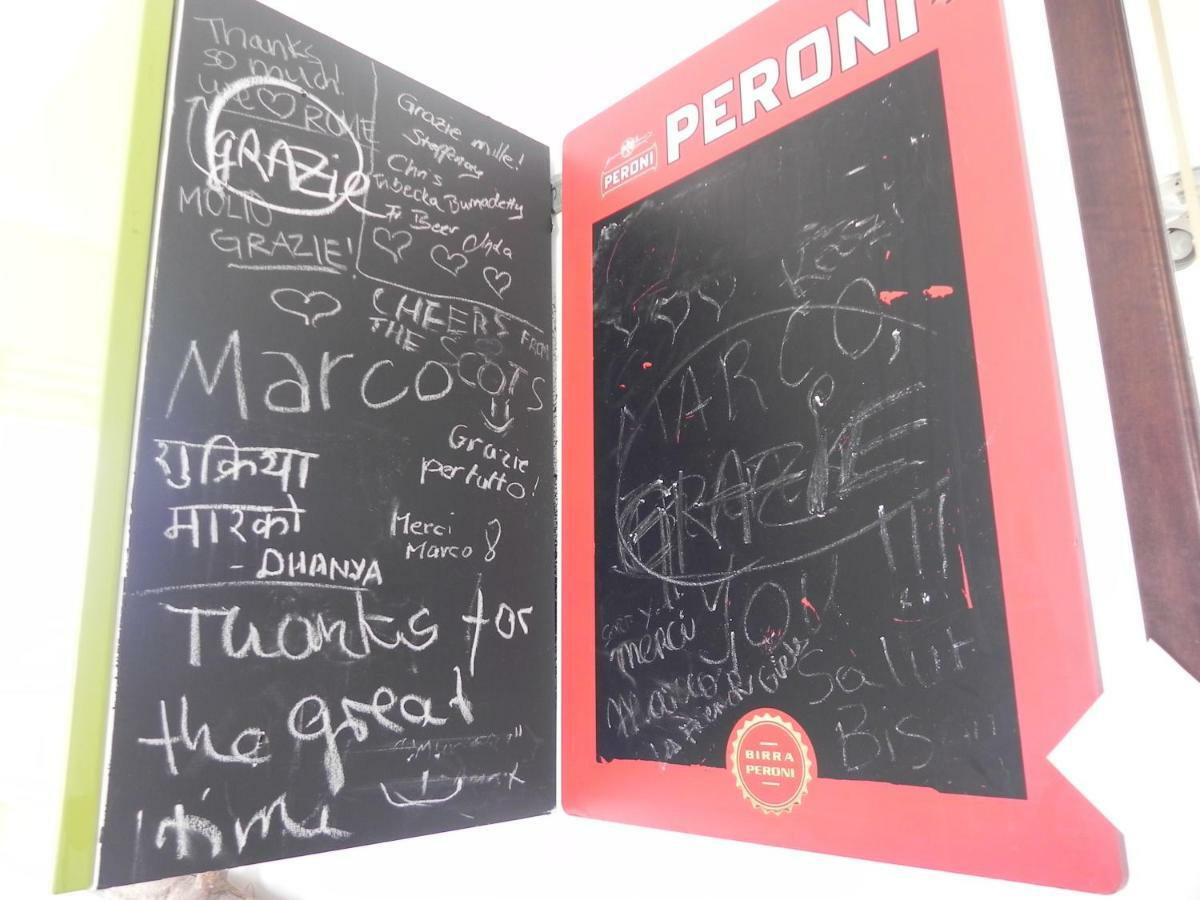 Thanks
so much!
we ♡ ROME
GRAZIE
MOLTO
GRAZIE!
Grazie mille!
Chris
Beer
CHEERS FROM
THE SCOTS
Marco
Grazie
per tutto!
शुक्रिया
मारको
- DHANYA
Merci
Marco
Thanks for
the great
time
PERONI
PERONI
MARCO,
GRAZIE
!!!
YOU
merci
Marco
Salut
BIRRA
PERONI